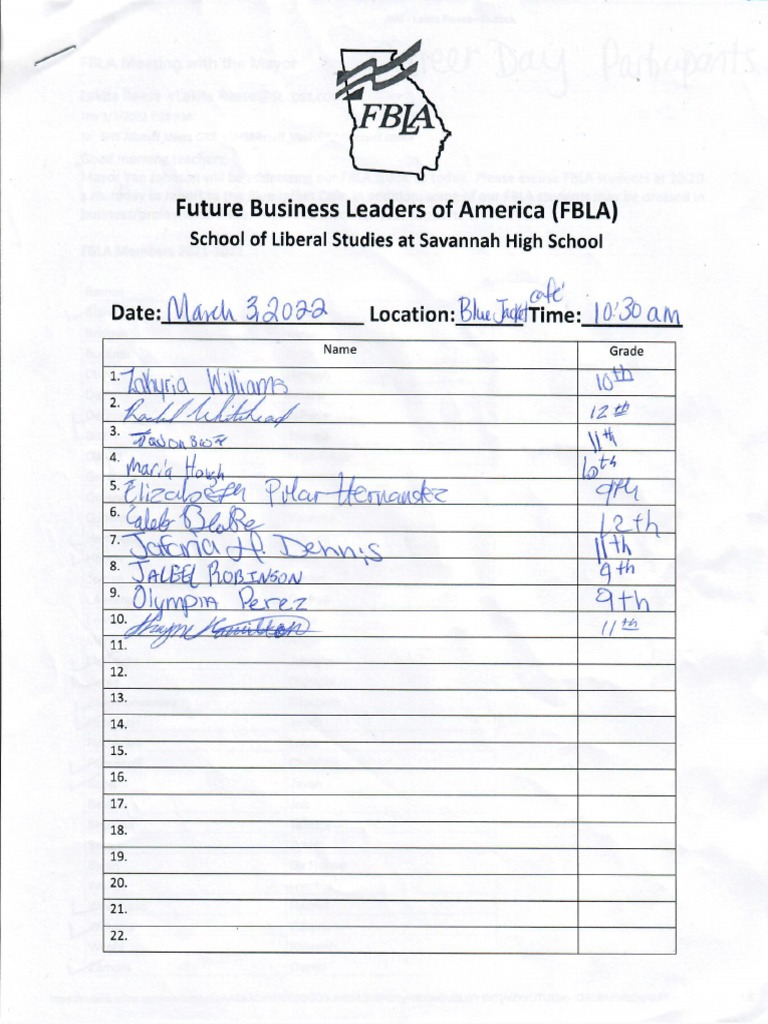 FBLA
Day Participants
Future Business Leaders of America (FBLA)
School of Liberal Studies at Savannah High School
Date: March 3, 2022 Location: Blue Jacket café Time: 10:30 am
Name Grade
1. Zahyria Williams 10th
2. Rachel Whitehead 12th
3. 11th
4. Maria Hough 10th
5. Elizabeth Pilar Hernandez 9th
6. Caleb Blake 12th
7. Jafaria H. Dennis 11th
8. JALEEL ROBINSON 9th
9. Olympia Perez 9th
10. 11th
11.
12.
13.
14.
15.
16.
17.
18.
19.
20.
21.
22.